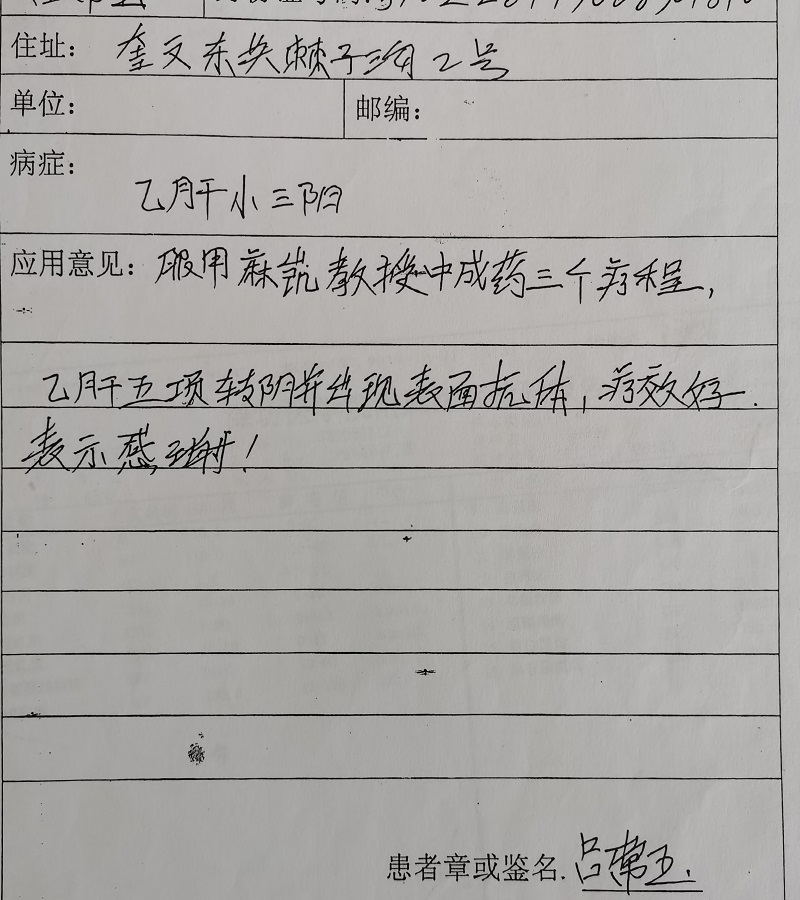 住址：奎文东关棘子沟2号
单位： 邮编：
病症：
乙肝小三阳
应用意见：服用麻凯教授中成药三个疗程，
乙肝五项转阴并出现表面抗体，疗效好.
表示感谢！
患者章或鉴名. 吕常玉.